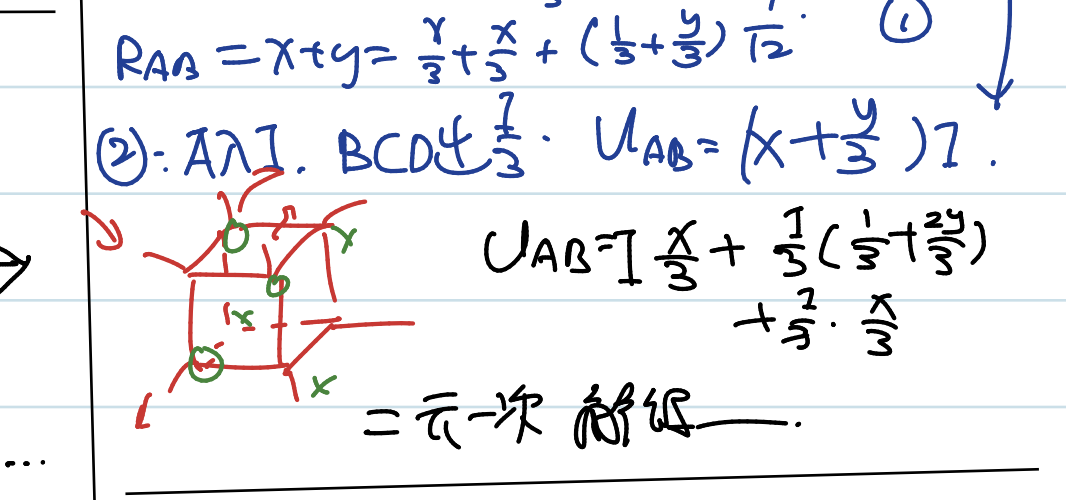 R_AB = x+y = x/3 + x/3 + (1/3 + y/3) 1/12. ①
②: A入I. BCD出 I/3. U_AB = (x + y/3)I.
U_AB = I x/3 + I/3 (1/3 + 2y/3)
+ I/3 · x/3
= 二元一次 解得——.
x
x
x
...